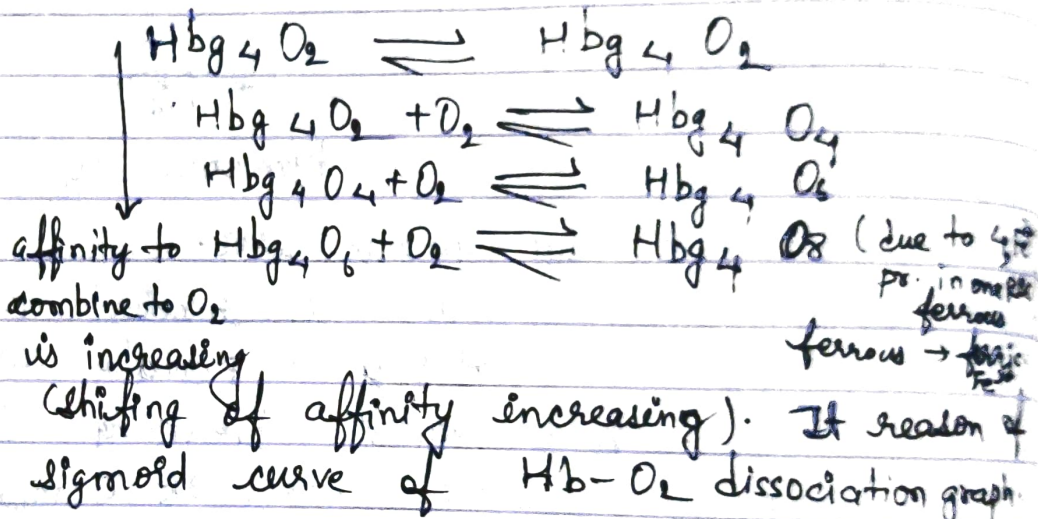 Hbg₄O₂ ⇌ Hbg₄ O₂
Hbg₄O₂ + O₂ ⇌ Hbg₄ O₄
Hbg₄O₄ + O₂ ⇌ Hbg₄ O₆
affinity to Hbg₄O₆ + O₂ ⇌ Hbg₄ O₈ (due to 4
combine to O₂ pr. in one
ferrous
is increasing ferrous →
(shifing of affinity increasing). It reason of
sigmoid curve of Hb-O₂ dissociation graph.